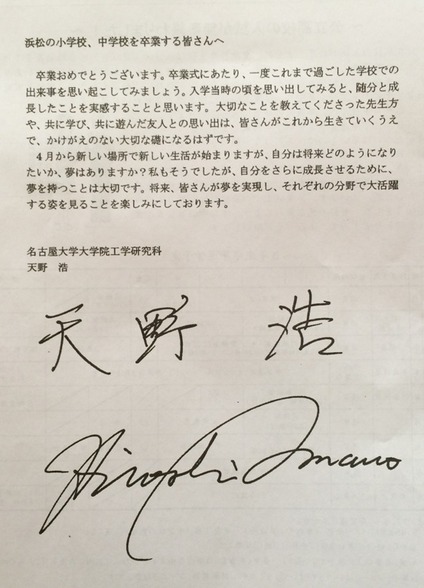 浜松の小学校、中学校を卒業する皆さんへ
卒業おめでとうございます。卒業式にあたり、一度これまで過ごした学校での
出来事を思い起こしてみましょう。入学当時の頃を思い出してみると、随分と成
長したことを実感することと思います。大切なことを教えてくださった先生方
や、共に学び、共に遊んだ友人との思い出は、皆さんがこれから生きていくうえ
で、かけがえのない大切な礎になるはずです。
４月から新しい場所で新しい生活が始まりますが、自分は将来どのようになり
たいか、夢はありますか？私もそうでしたが、自分をさらに成長させるために、
夢を持つことは大切です。将来、皆さんが夢を実現し、それぞれの分野で大活躍
する姿を見ることを楽しみにしております。
名古屋大学大学院工学研究科
天野　浩
天野　浩
Hiroshi Amano